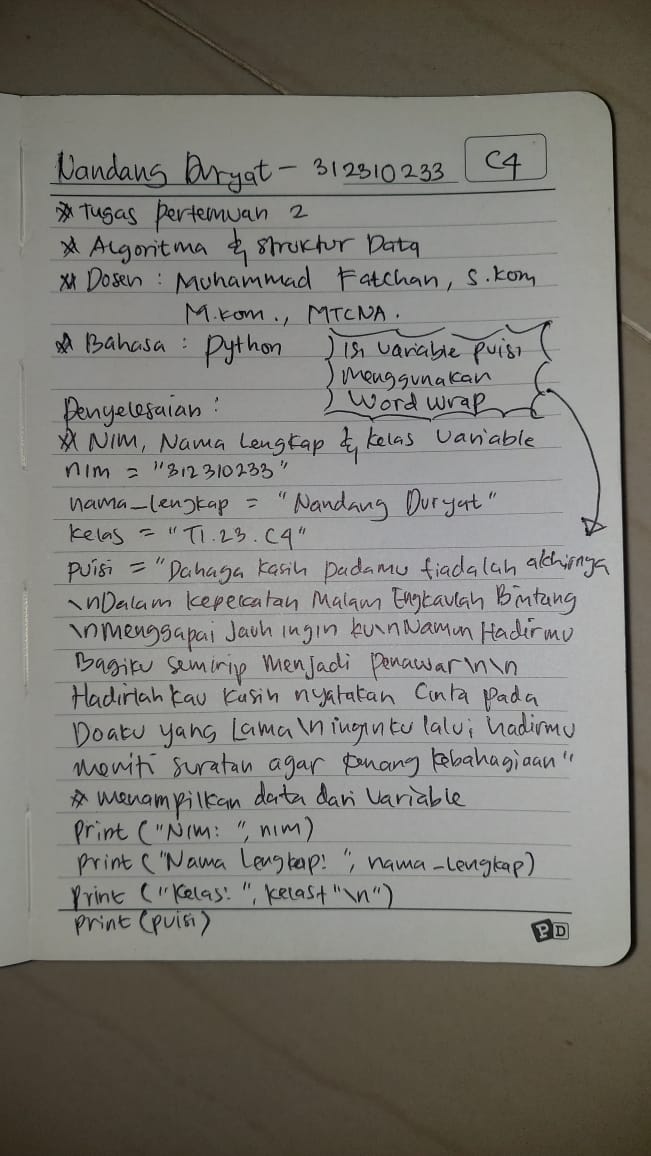 Nandang Duryat - 312310233 C4
* Tugas Pertemuan 2
* Algoritma & Struktur Data
* Dosen : Muhammad Fatchan, S.kom
M.kom., MTCNA.
* Bahasa : Python
Isi variable puisi
Menggunakan
Word wrap
Penyelesaian :
* NIM, Nama Lengkap & kelas Variable
nim = "312310233"
nama_lengkap = "Nandang Duryat"
kelas = "TI.23.C4"
puisi = "Dahaga kasih padamu tiadalah akhirnya
\nDalam kepekatan Malam Engkaulah Bintang
\nmenggapai Jauh ingin ku\nNamun Hadirmu
Bagiku semirip Menjadi penawar\n\n
Hadirlah kau kasih nyatakan Cinta pada
Doaku yang Lama\n inginku lalui hadirmu
meniti suratan agar kebahagiaan"
* menampilkan data dari Variable
Print ("Nim: ", nim)
print ("Nama Lengkap: ", nama_lengkap)
print ("kelas: ", kelas+"\n")
print (puisi)
PD